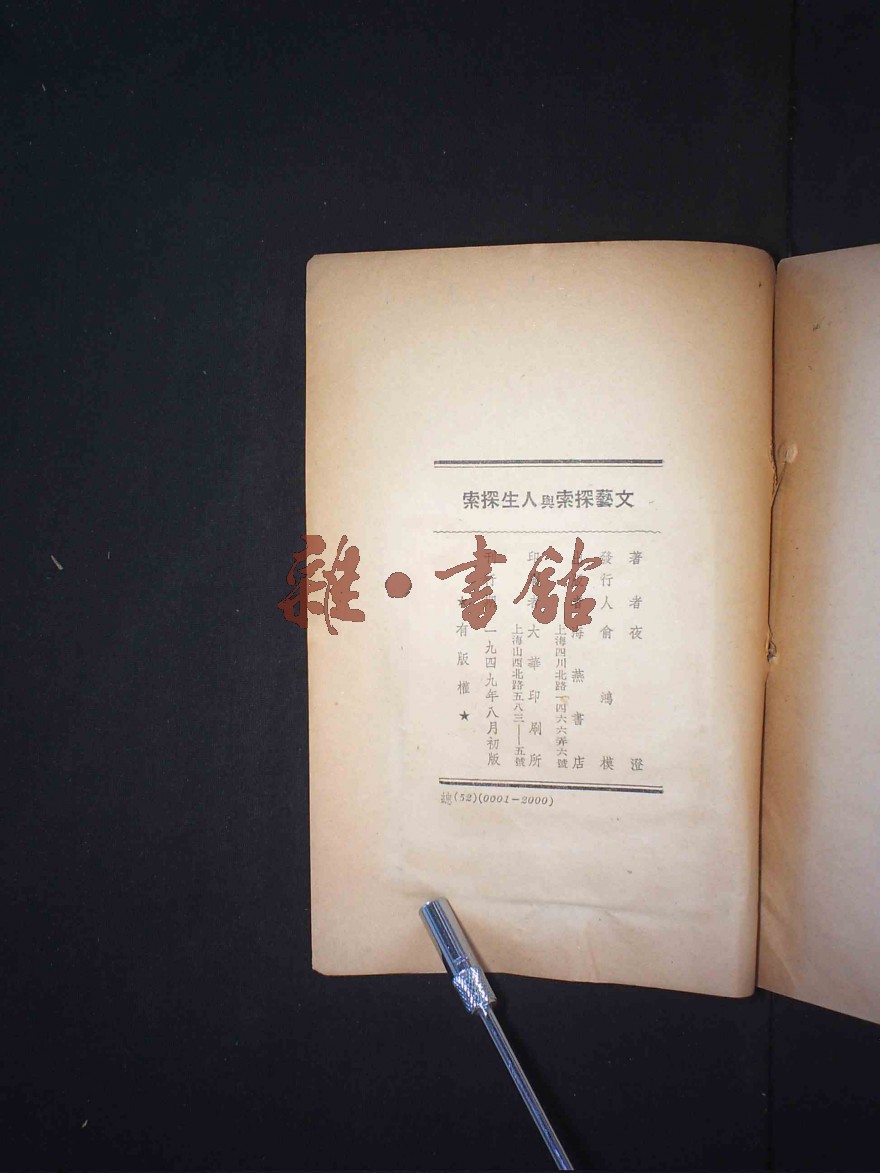 文藝探索與人生探索
著者夜澄
發行人俞鴻模
海燕書店
上海四川北路一四六六弄六號
印刷者大華印刷所
上海山西北路五八三——五號
一九四九年八月初版
有版權★
總(52)(0001-2000)
雜·書館